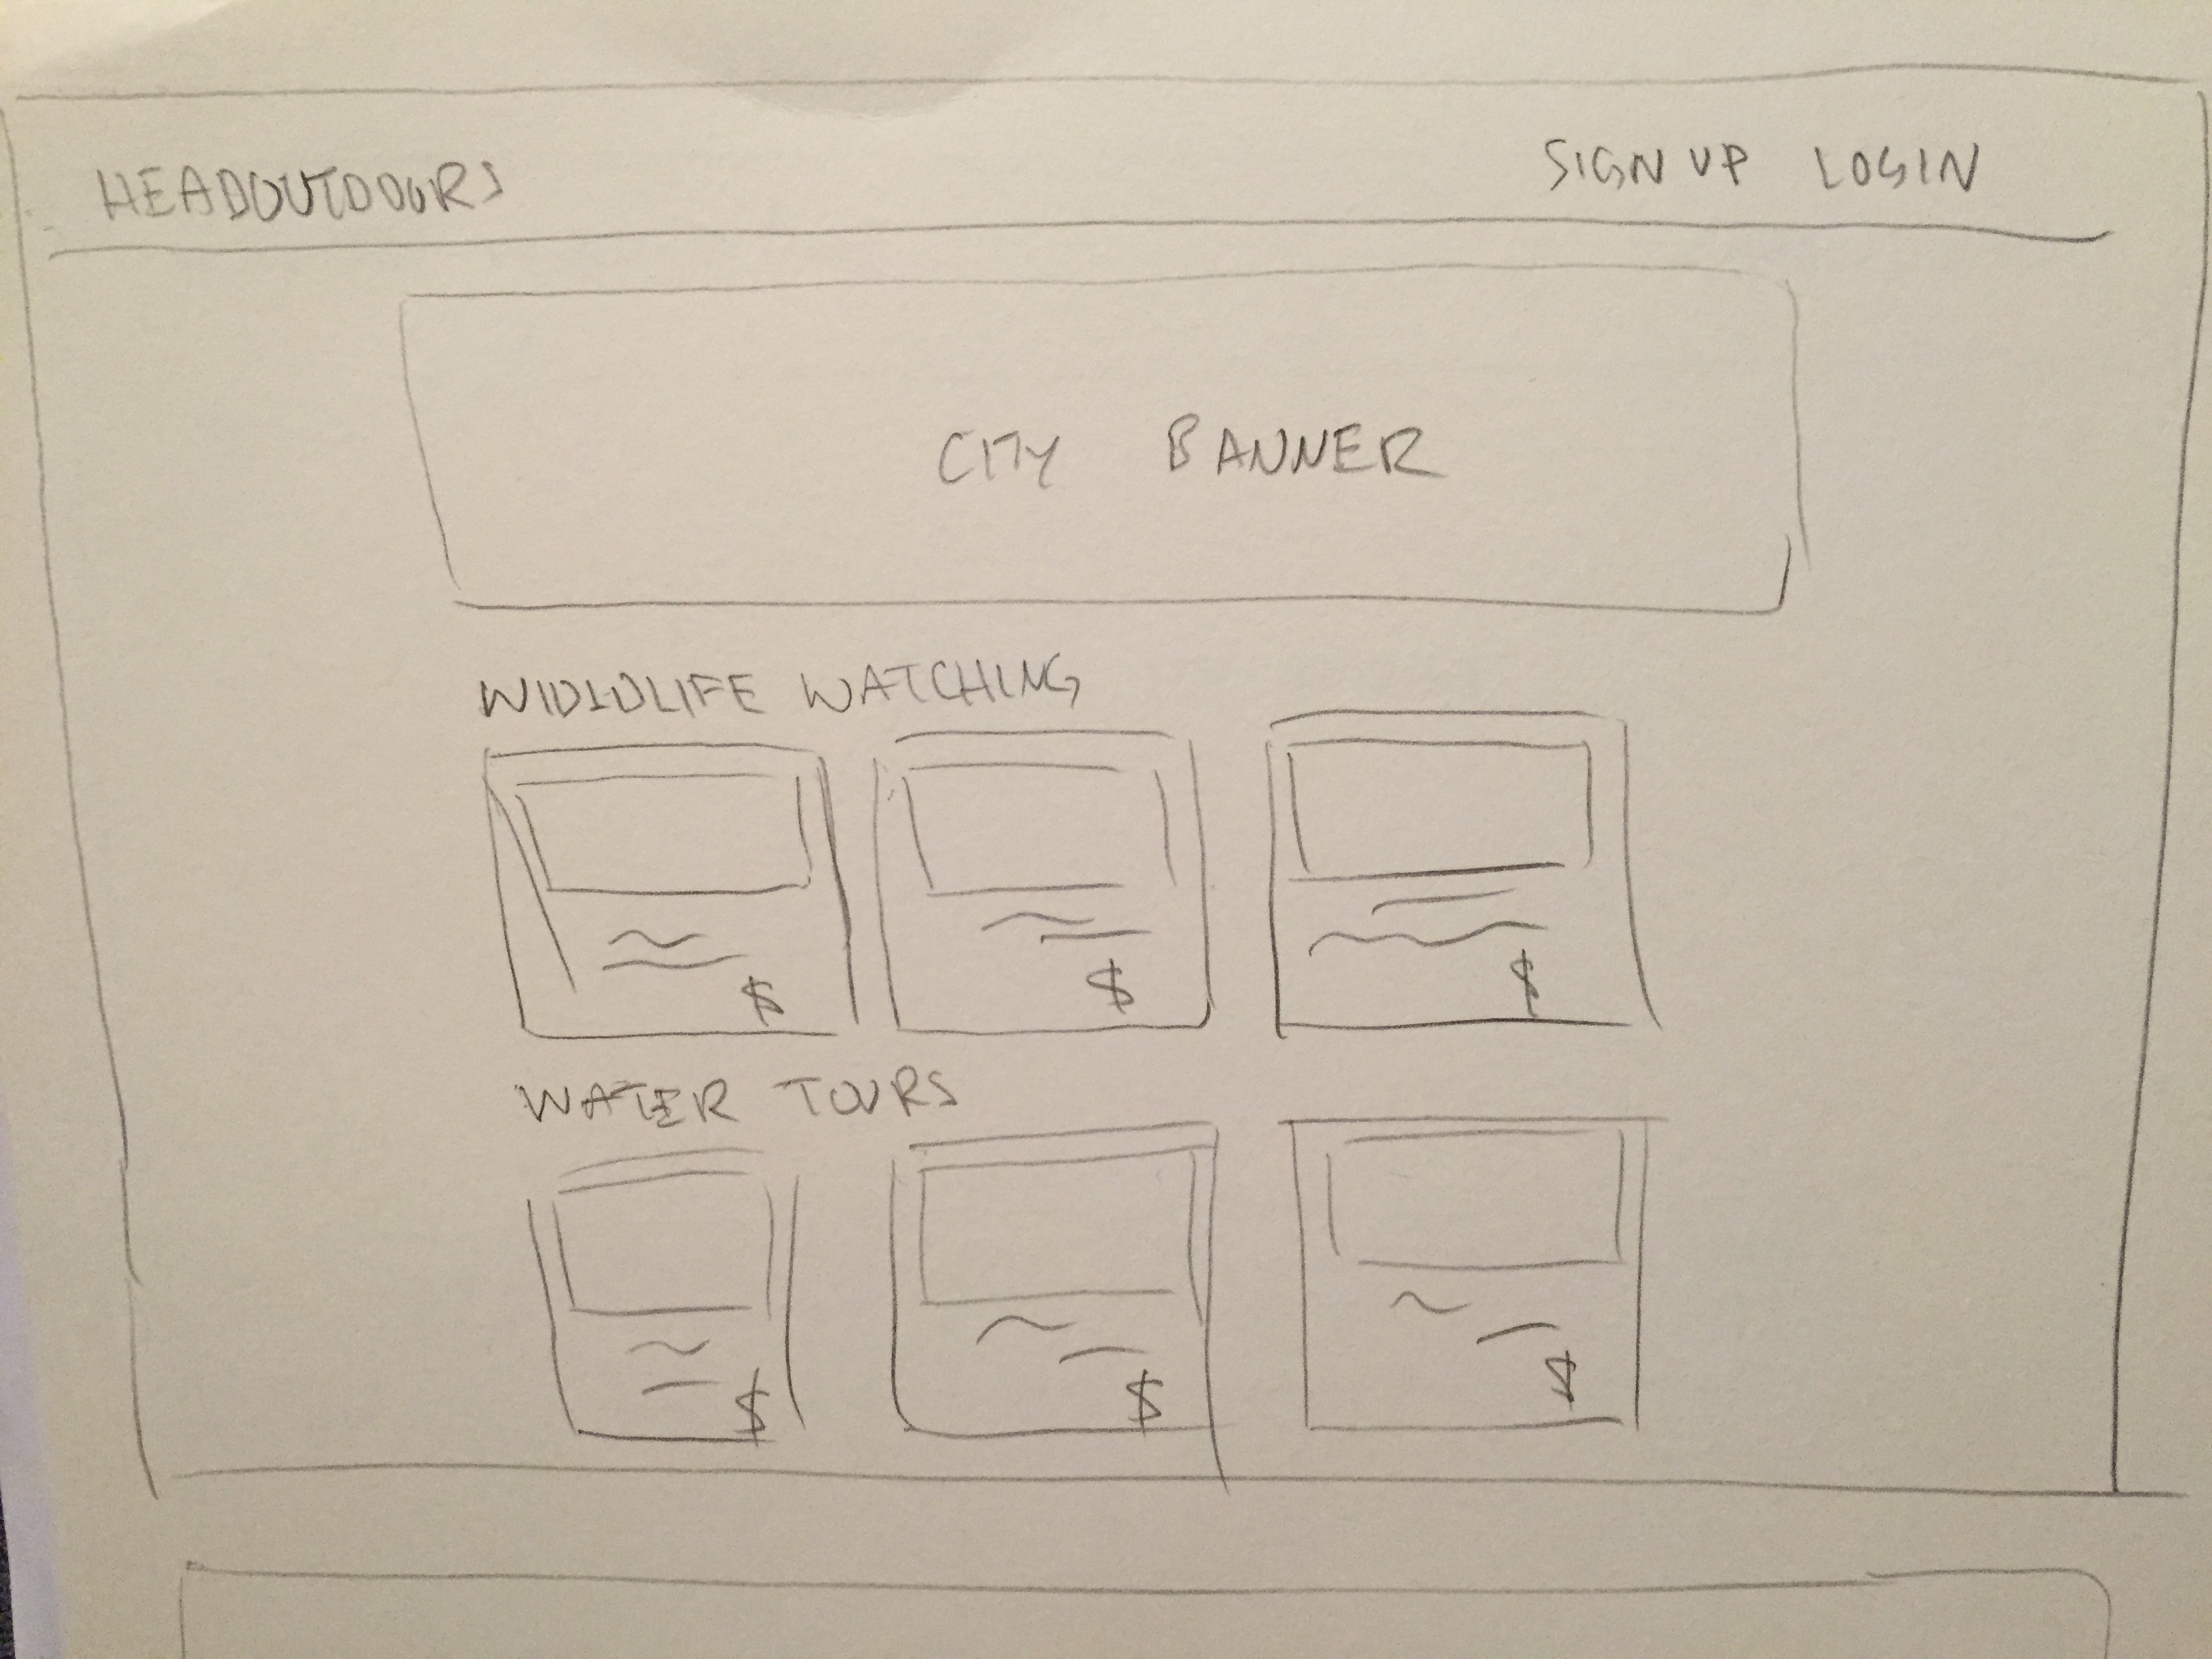 HEADOUTDOORS SIGN UP LOGIN
CITY BANNER
WIDLDLIFE WATCHING
$ $ $
WATER TOURS
$ $ $